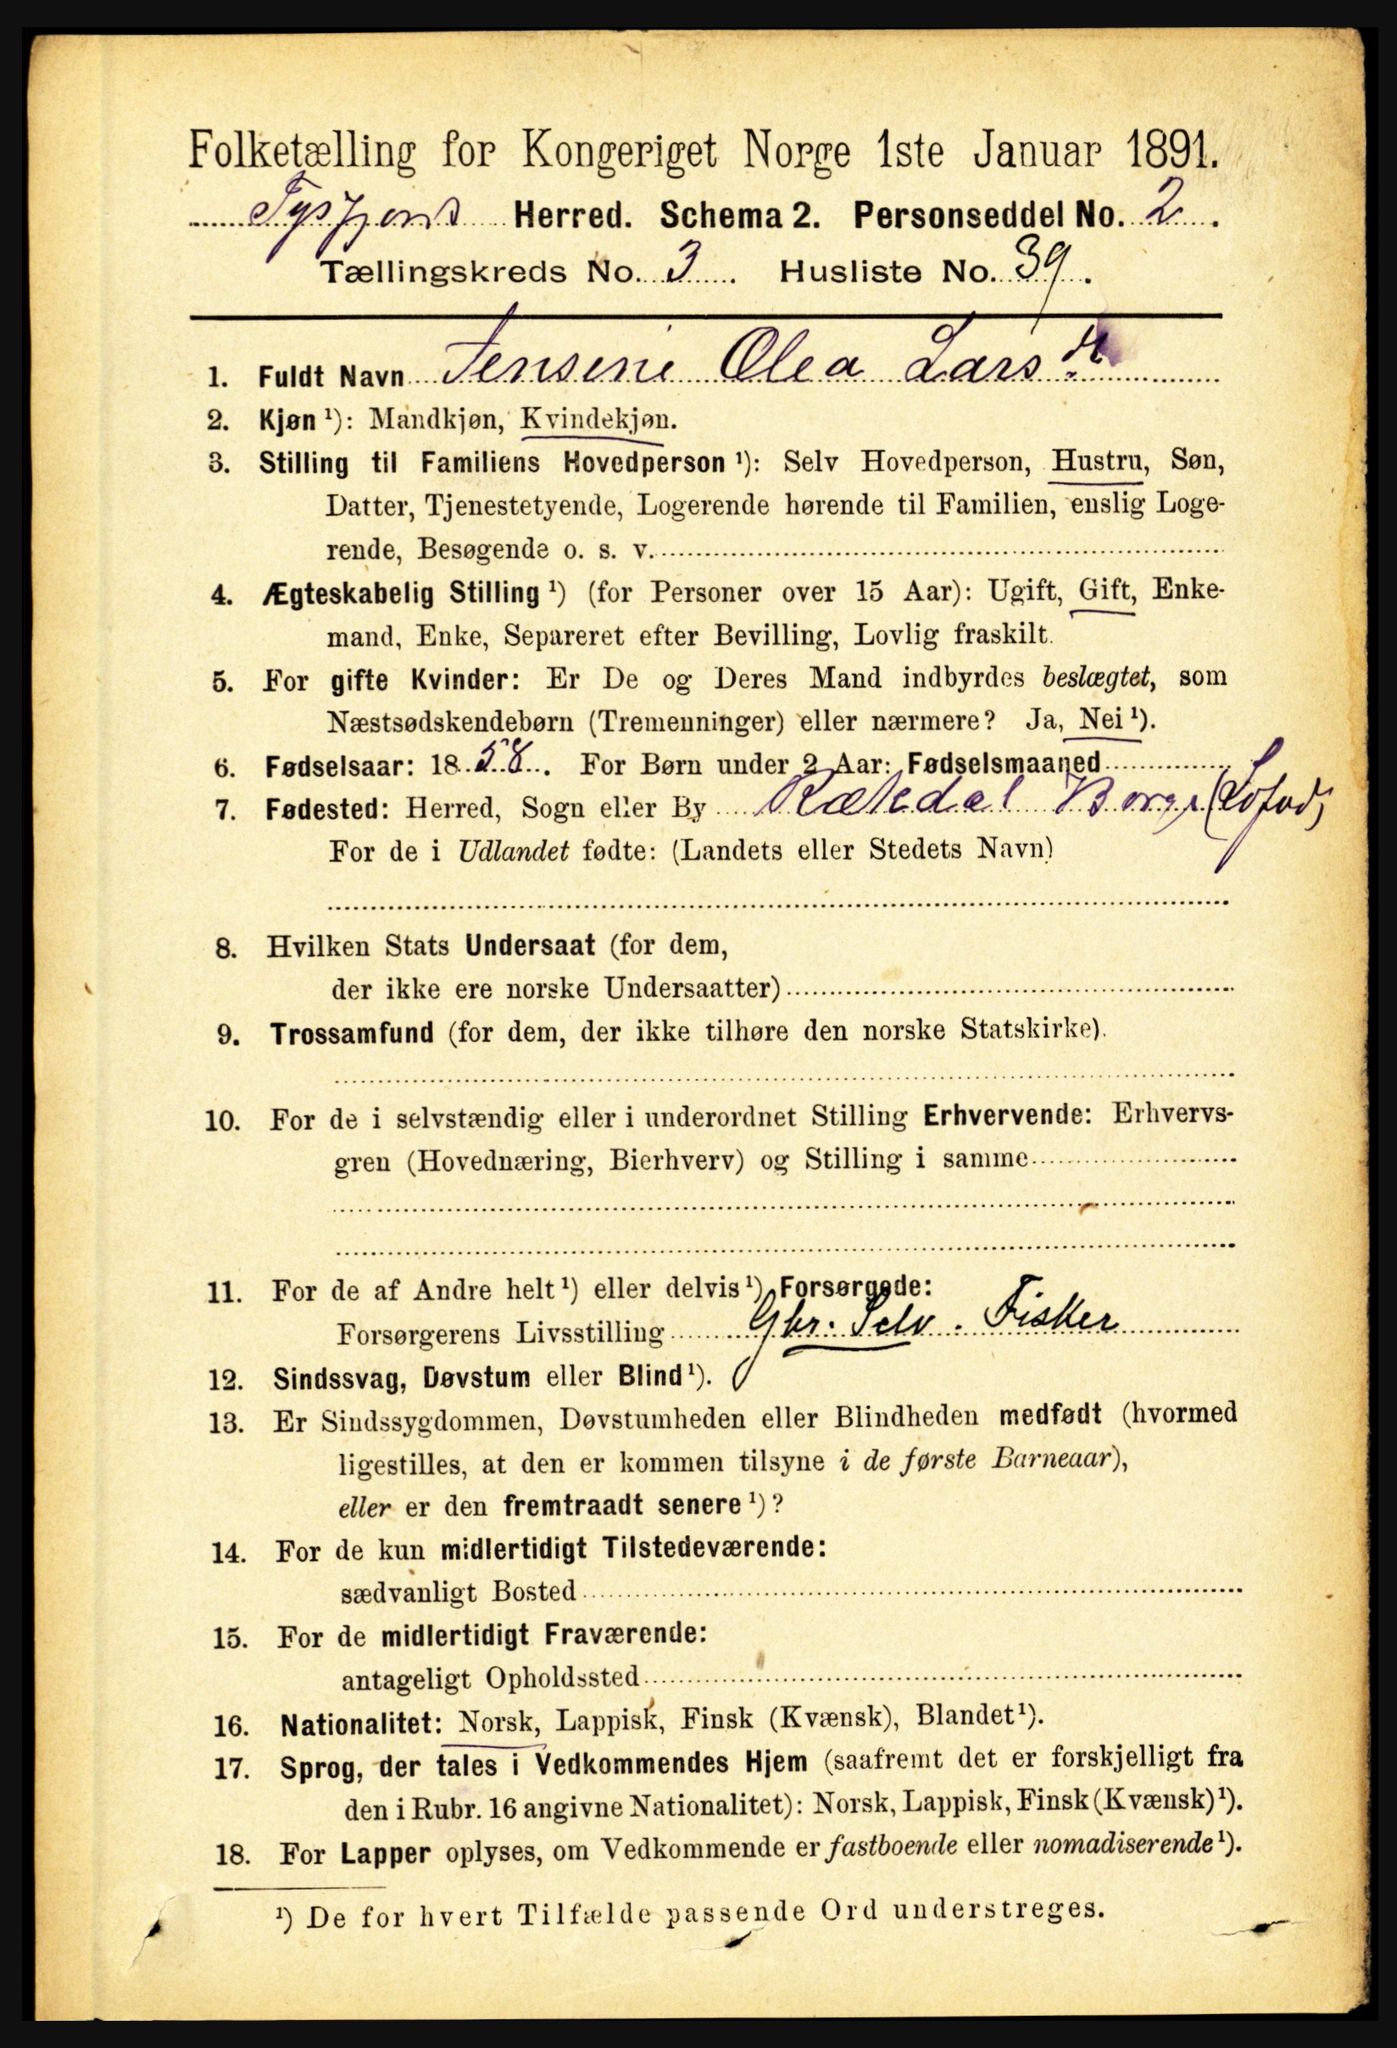 Folketælling for Kongeriget Norge 1ste Januar 1891.
Tysfjord Herred. Schema 2. Personseddel No. 2.
Tællingskreds No. 3. Husliste No. 39.
1. Fuldt Navn Jensine Olea Larsdt
2. Kjøn ¹): Mandkjøn, Kvindekjøn.
3. Stilling til Familiens Hovedperson ¹): Selv Hovedperson, Hustru, Søn,
Datter, Tjenestetyende, Logerende hørende til Familien, enslig Loge-
rende, Besøgende o. s. v.
4. Ægteskabelig Stilling ¹) (for Personer over 15 Aar): Ugift, Gift, Enke-
mand, Enke, Separeret efter Bevilling, Lovlig fraskilt.
5. For gifte Kvinder: Er De og Deres Mand indbyrdes beslægtet, som
Næstsødskendebørn (Tremenninger) eller nærmere? Ja, Nei ¹).
6. Fødselsaar: 1858. For Børn under 2 Aar: Fødselsmaaned
7. Fødested: Herred, Sogn eller By Borge (Lofod)
For de i Udlandet fødte: (Landets eller Stedets Navn)
8. Hvilken Stats Undersaat (for dem,
der ikke ere norske Undersaatter)
9. Trossamfund (for dem, der ikke tilhøre den norske Statskirke).
10. For de i selvstændig eller i underordnet Stilling Erhvervende: Erhvervs-
gren (Hovednæring, Bierhverv) og Stilling i samme
11. For de af Andre helt ¹) eller delvis ¹) Forsørgede:
Forsørgerens Livsstilling Gbr. Selv. Fisker
12. Sindssvag, Døvstum eller Blind ¹).
13. Er Sindssygdommen, Døvstumheden eller Blindheden medfødt (hvormed
ligestilles, at den er kommen tilsyne i de første Barneaar),
eller er den fremtraadt senere ¹)?
14. For de kun midlertidigt Tilstedeværende:
sædvanligt Bosted
15. For de midlertidigt Fraværende:
antageligt Opholdssted
16. Nationalitet: Norsk, Lappisk, Finsk (Kvænsk), Blandet ¹).
17. Sprog, der tales i Vedkommendes Hjem (saafremt det er forskjelligt fra
den i Rubr. 16 angivne Nationalitet): Norsk, Lappisk, Finsk (Kvænsk) ¹).
18. For Lapper oplyses, om Vedkommende er fastboende eller nomadiserende ¹).
¹) De for hvert Tilfælde passende Ord understreges.